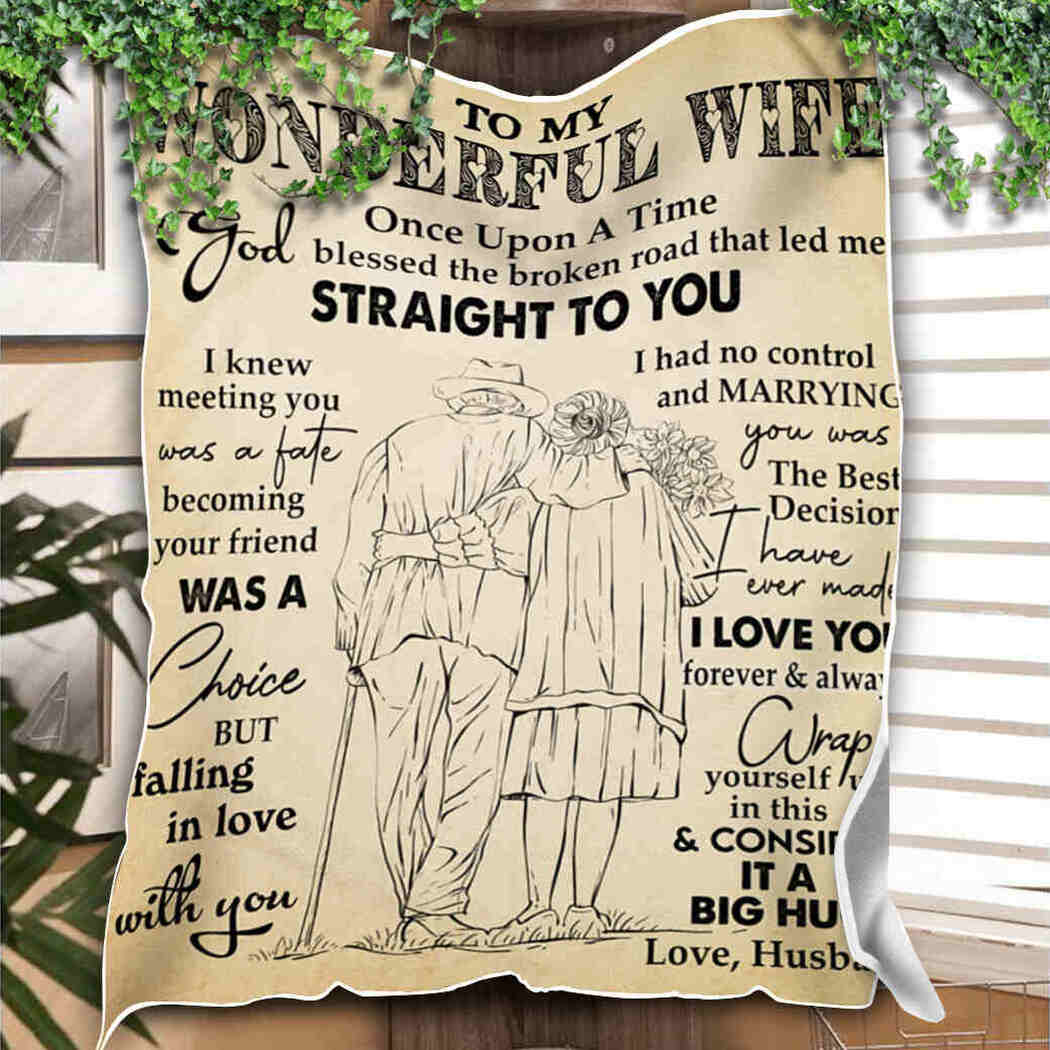 TO MY
WONDERFUL WIFE
Once Upon A Time
God blessed the broken road that led me
STRAIGHT TO YOU
I knew
meeting you
was a fate
becoming
your friend
WAS A
Choice
BUT
falling
in love
with you
I had no control
and MARRYING
you was
The Best
Decision
I have
ever made
I LOVE YOU
forever & alway
Wrap
yourself u
in this
& CONSI
IT A
BIG HU
Love, Husba